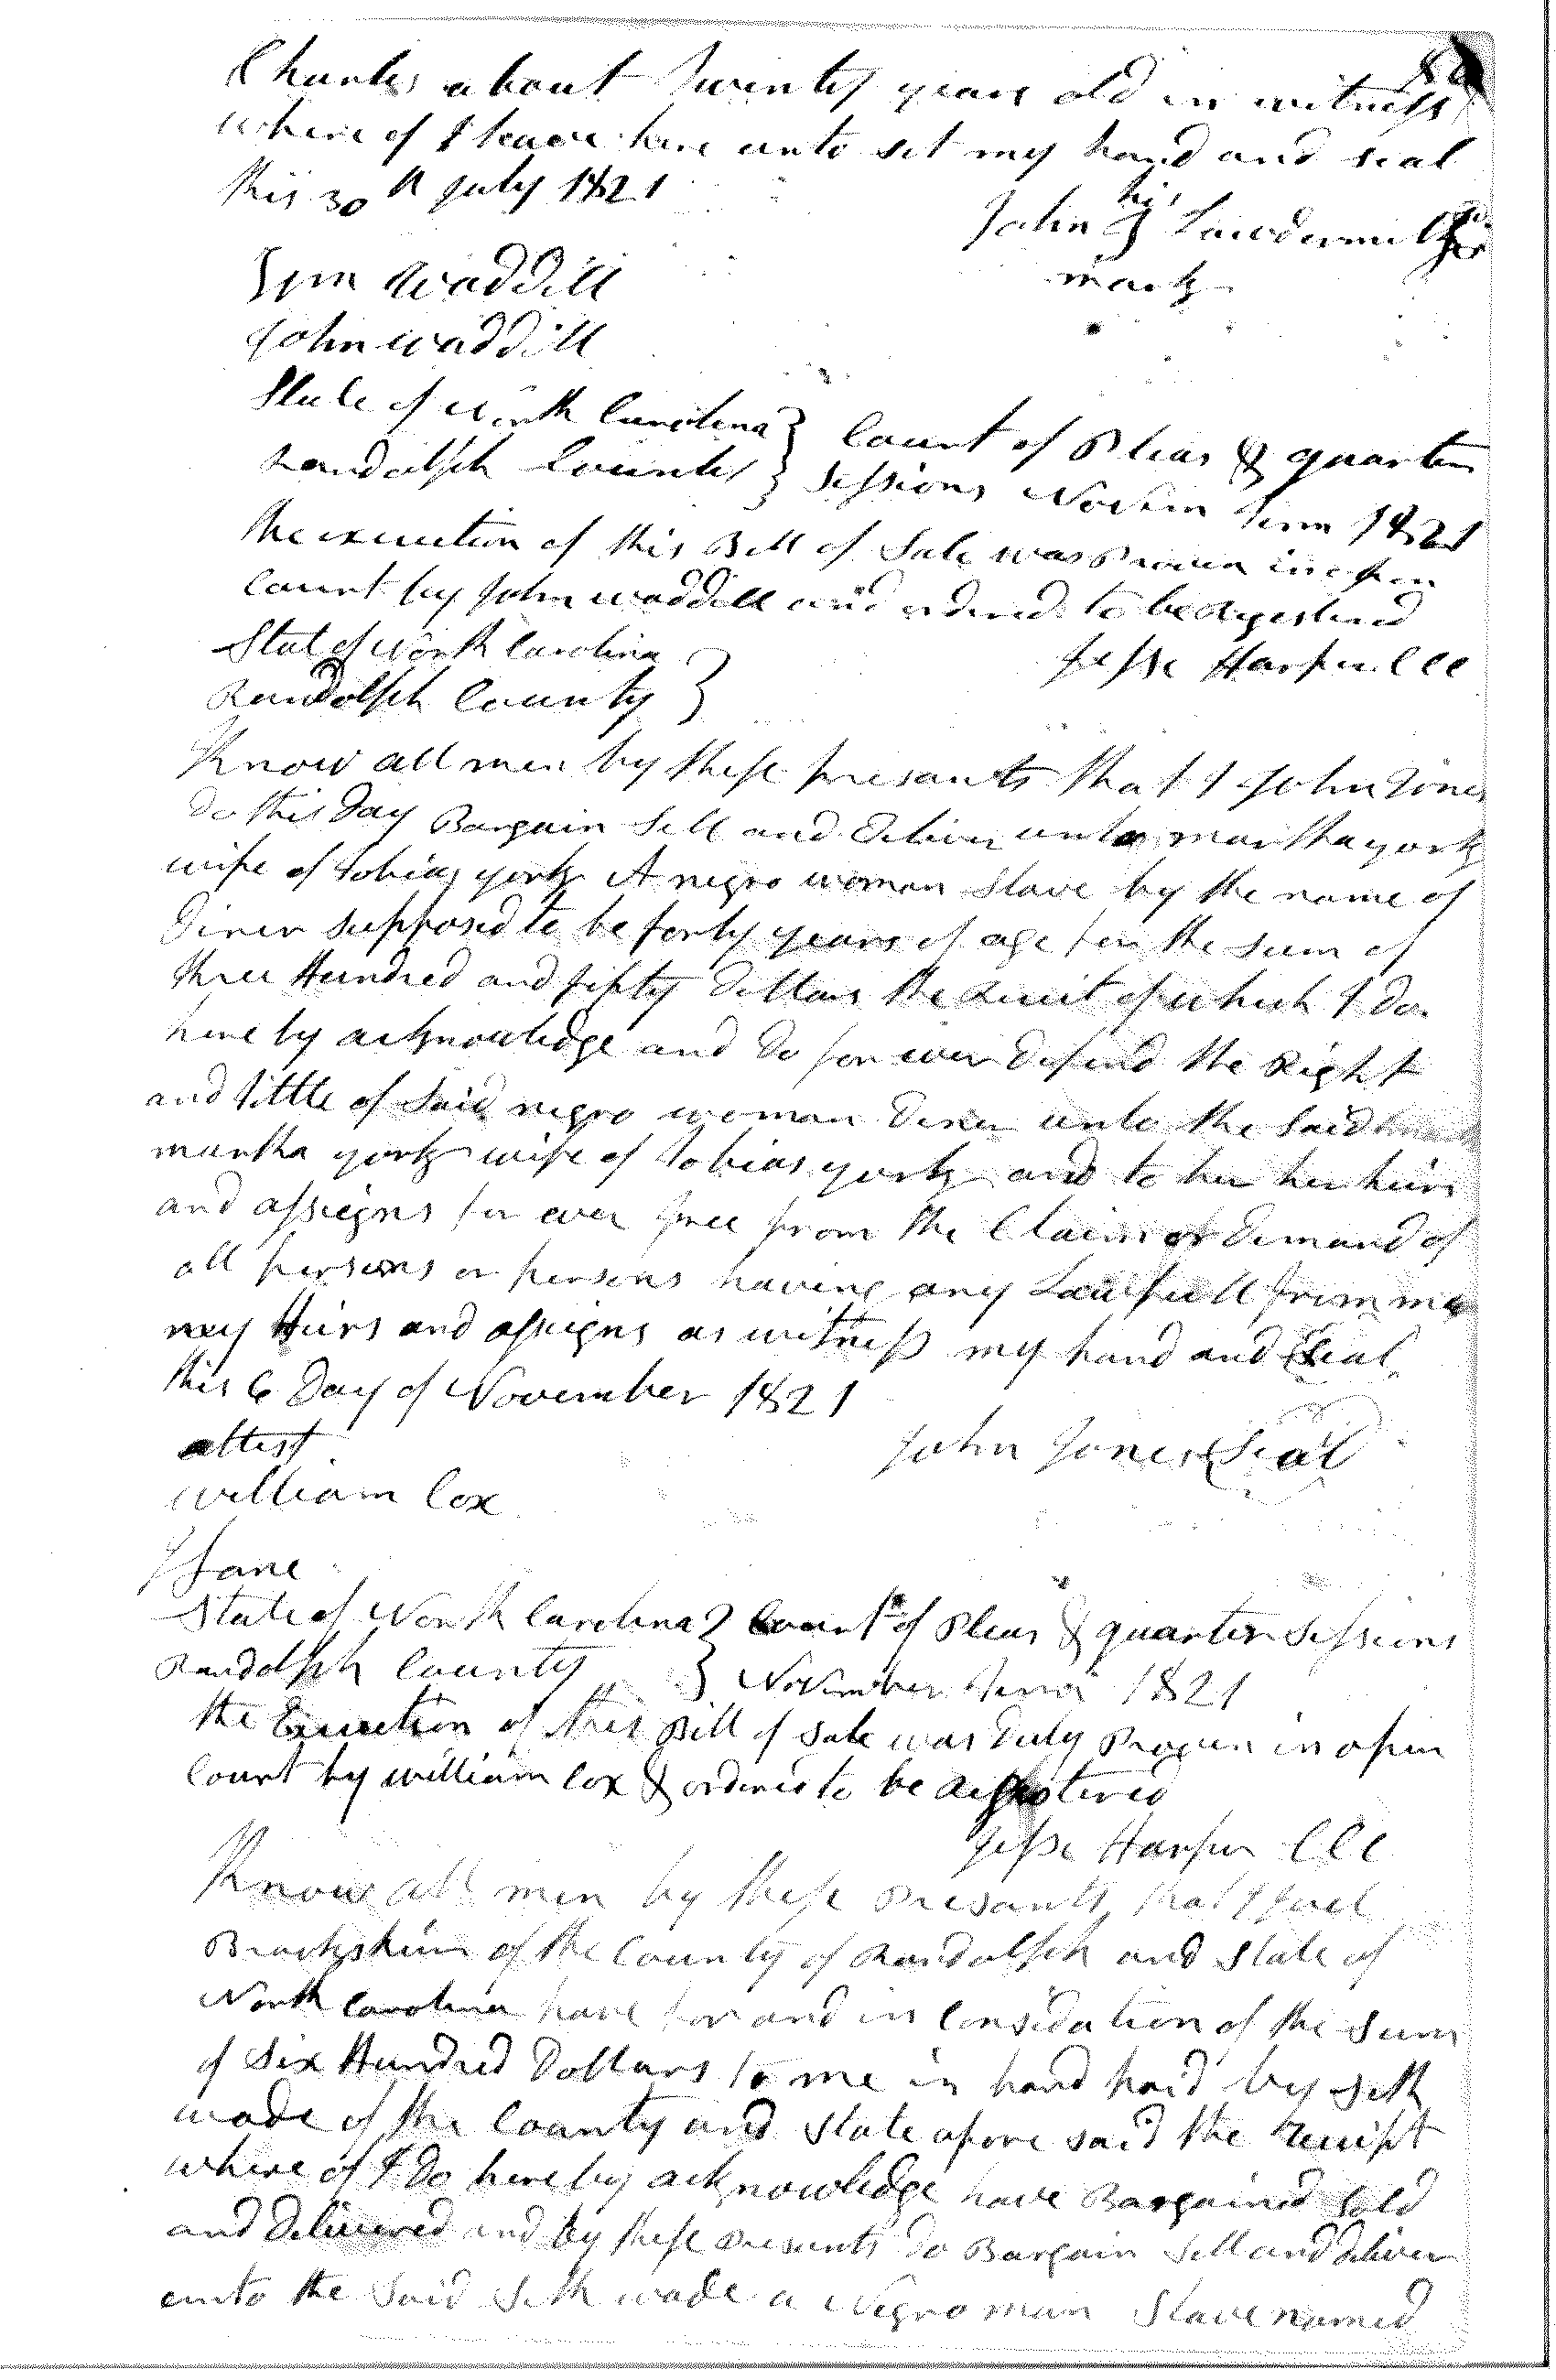 Charles about Twenty years old in witness
where of I heave here unto set my hand and seal
this 30th July 1821
his
John Lawdermilk
mark
Jim Waddill
John Waddill
State of North Carolina } Court of Pleas & quarter
Randolph County } Sessions Novem Term 1821
the execution of this Bill of Sale was Proven in open
Court by John Waddill and ordered to be Registered
Jesse Harper CCC
Stat of North Carolina
Randolph County }
Know all men by these presants that I John Jones
do this Day Bargain Sell and Deliver unto martha york
wife of tobias york A negro woman Slave by the name of
Diner supposed to be forty years of age for the sum of
three Hundred and fifty Dollars the Receit of which I do
here by acknowledge and do for ever defend the Right
and tittle of Said negro woman Diner unto the Said
martha york wife of Tobias york and to her her heirs
and assigns for ever free from the Claim or demand of
all persons or persons having any Lawfull from me
my Heirs and assigns as witness my hand and Seal
this 6 Day of November 1821
attest
John Jones Seal
William Cox
State of North Carolina } Court of Pleas & quarter Sessions
Randolph County } November Term 1821
the Execution of this Bill of Sale was Duly Proven in open
Court by william Cox & ordered to be Registered
Jesse Harper CCC
Know all men by these Presants that I Joel
of the County of Randolph and State of
North Carolina have for and in Considation of the Sum
of Six Hundred Dollars to me in hand paid by Seth
wade of the County and State afore said the receipt
where of I do hereby acknowledge have Bargained Sold
and Delivered and by these Presents do Bargain Sell and deliver
unto the Said Seth wade a Negro man Slave named